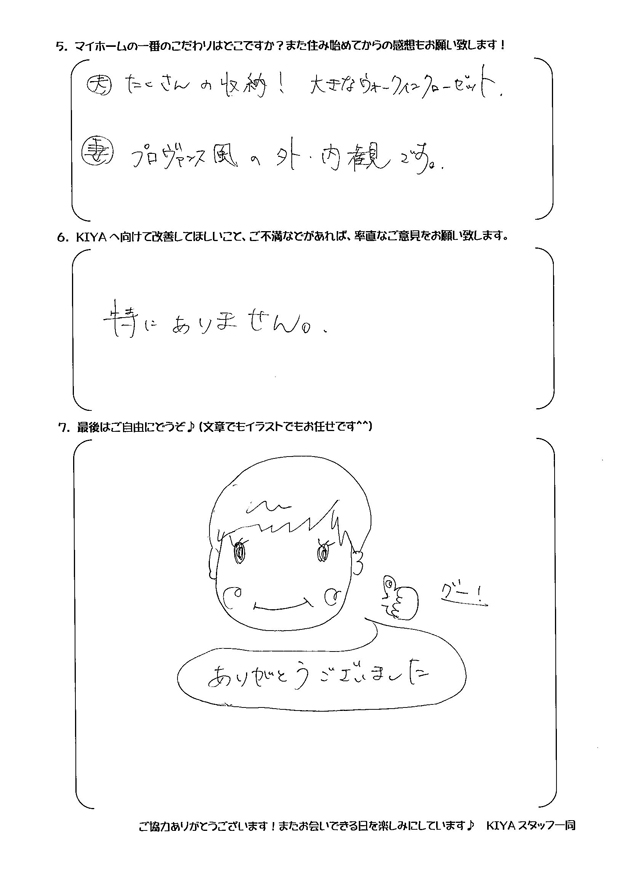 5. マイホームの一番のこだわりはどこですか？また住み始めてからの感想もお願い致します！
夫 たくさんの収納！ 大きなウォークインクローゼット.
妻 プロヴァンス風の外・内観です。
6. KIYAへ向けて改善してほしいこと、ご不満などがあれば、率直なご意見をお願い致します。
特にありません。.
7. 最後はご自由にどうぞ♪(文章でもイラストでもお任せです^^)
グー！
ありがとうございました
ご協力ありがとうございます！またお会いできる日を楽しみにしています♪ KIYAスタッフ一同